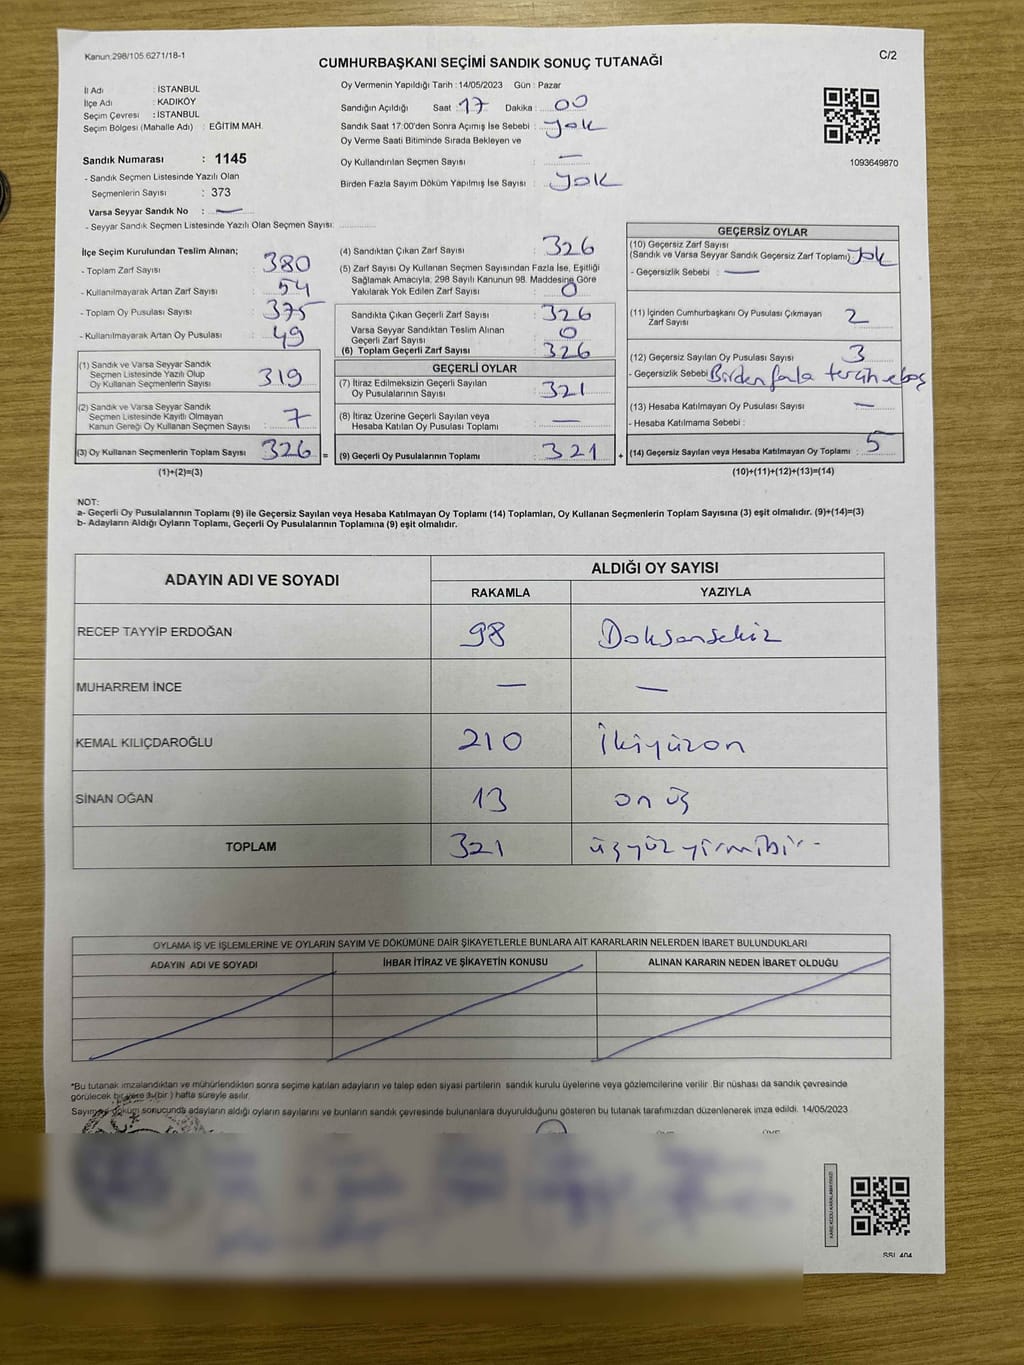 Kanun 298/105 6271/18-1
C/2
CUMHURBAŞKANI SEÇİMİ SANDIK SONUÇ TUTANAĞI
İl Adı : İSTANBUL
İlçe Adı : KADIKÖY
Seçim Çevresi : İSTANBUL
Seçim Bölgesi (Mahalle Adı) : EĞİTİM MAH.
Sandık Numarası : 1145
- Sandık Seçmen Listesinde Yazılı Olan
Seçmenlerin Sayısı : 373
Varsa Seyyar Sandık No : —
- Seyyar Sandık Seçmen Listesinde Yazılı Olan Seçmen Sayısı:
Oy Vermenin Yapıldığı Tarih : 14/05/2023 Gün : Pazar
Sandığın Açıldığı Saat : 17 Dakika : 00
Sandık Saat 17:00'den Sonra Açımış İse Sebebi : yok
Oy Verme Saati Bitiminde Sırada Bekleyen ve
Oy Kullandırılan Seçmen Sayısı : —
Birden Fazla Sayım Döküm Yapılmış İse Sayısı : yok
1093649870
İlçe Seçim Kurulundan Teslim Alınan;
- Toplam Zarf Sayısı : 380
- Kullanılmayarak Artan Zarf Sayısı : 54
- Toplam Oy Pusulası Sayısı : 375
- Kullanılmayarak Artan Oy Pusulası : 49
(1) Sandık ve Varsa Seyyar Sandık
Seçmen Listesinde Yazılı Olup
Oy Kullanan Seçmenlerin Sayısı : 319
(2) Sandık ve Varsa Seyyar Sandık
Seçmen Listesinde Kayıtlı Olmayan
Kanun Gereği Oy Kullanan Seçmen Sayısı : 7
(3) Oy Kullanan Seçmenlerin Toplam Sayısı : 326 =
(1)+(2)=(3)
(4) Sandıktan Çıkan Zarf Sayısı : 326
(5) Zarf Sayısı Oy Kullanan Seçmen Sayısından Fazla İse, Eşitliği
Sağlamak Amacıyla, 298 Sayılı Kanunun 98. Maddesine Göre
Yakılarak Yok Edilen Zarf Sayısı : 0
Sandıkta Çıkan Geçerli Zarf Sayısı : 326
Varsa Seyyar Sandıktan Teslim Alınan
Geçerli Zarf Sayısı : 0
(6) Toplam Geçerli Zarf Sayısı : 326
GEÇERLİ OYLAR
(7) İtiraz Edilmeksizin Geçerli Sayılan
Oy Pusulalarının Sayısı : 321
(8) İtiraz Üzerine Geçerli Sayılan veya
Hesaba Katılan Oy Pusulası Toplamı : —
(9) Geçerli Oy Pusulalarının Toplamı : 321 +
GEÇERSİZ OYLAR
(10) Geçersiz Zarf Sayısı
(Sandık ve Varsa Seyyar Sandık Geçersiz Zarf Toplamı) : yok
- Geçersizlik Sebebi : —
(11) İçinden Cumhurbaşkanı Oy Pusulası Çıkmayan
Zarf Sayısı : 2
(12) Geçersiz Sayılan Oy Pusulası Sayısı : 3
- Geçersizlik Sebebi : Birden fazla tercih eboş
(13) Hesaba Katılmayan Oy Pusulası Sayısı : —
- Hesaba Katılmama Sebebi :
(14) Geçersiz Sayılan veya Hesaba Katılmayan Oy Toplamı : 5
(10)+(11)+(12)+(13)=(14)
NOT:
a- Geçerli Oy Pusulalarının Toplamı (9) ile Geçersiz Sayılan veya Hesaba Katılmayan Oy Toplamı (14) Toplamları, Oy Kullanan Seçmenlerin Toplam Sayısına (3) eşit olmalıdır. (9)+(14)=(3)
b- Adayların Aldığı Oyların Toplamı, Geçerli Oy Pusulalarının Toplamına (9) eşit olmalıdır.
ADAYIN ADI VE SOYADI
ALDIĞI OY SAYISI
RAKAMLA YAZIYLA
RECEP TAYYİP ERDOĞAN 98 Doksansekiz
MUHARREM İNCE — —
KEMAL KILIÇDAROĞLU 210 İkiyüzon
SİNAN OĞAN 13 on üç
TOPLAM 321 üçyüzyirmibir -
OYLAMA İŞ VE İŞLEMLERİNE VE OYLARIN SAYIM VE DÖKÜMÜNE DAİR ŞİKAYETLERLE BUNLARA AİT KARARLARIN NELERDEN İBARET BULUNDUKLARI
ADAYIN ADI VE SOYADI İHBAR İTİRAZ VE ŞİKAYETİN KONUSU ALINAN KARARIN NEDEN İBARET OLDUĞU
*Bu tutanak imzalandıktan ve mühürlendikten sonra seçime katılan adayların ve talep eden siyasi partilerin sandık kurulu üyelerine veya gözlemcilerine verilir. Bir nüshası da sandık çevresinde
görülecek bir yere 1 (bir) hafta süreyle asılır.
Sayım ve döküm sonucunda adayların aldığı oyların sayılarını ve bunların sandık çevresinde bulunanlara duyurulduğunu gösteren bu tutanak tarafımızdan düzenlenerek imza edildi. 14/05/2023
SSL 404